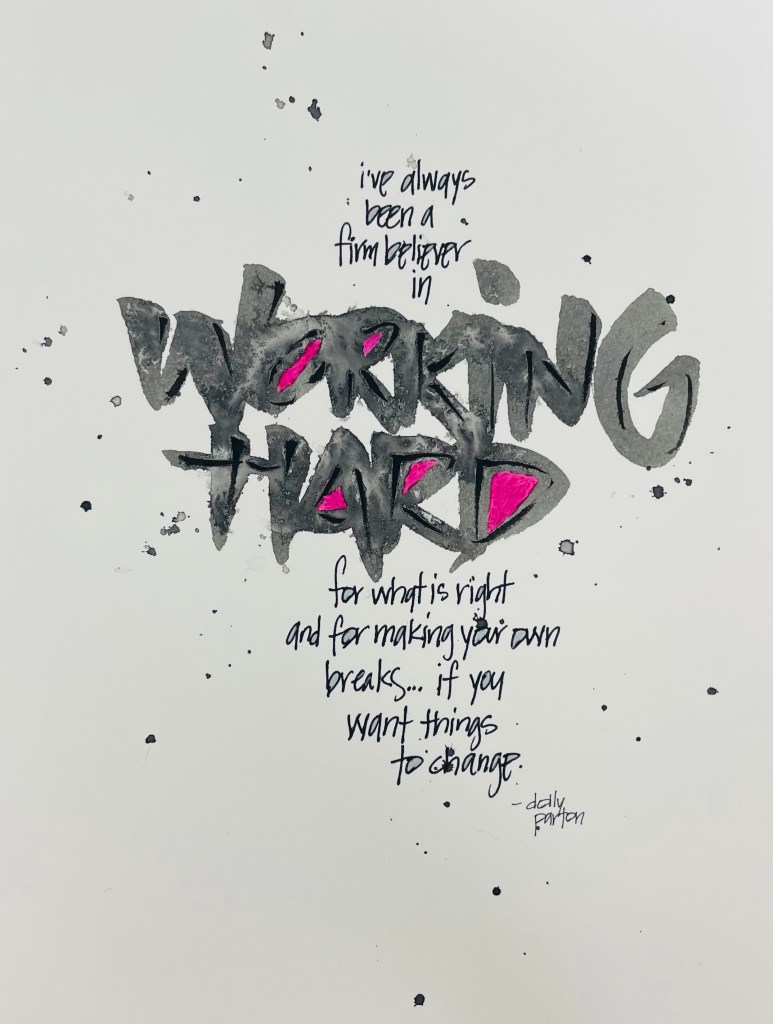 i've always
been a
firm believer
in
WORKiNG
HARD
for what is right
and for making your own
breaks... if you
want things
to change.
- dolly
parton